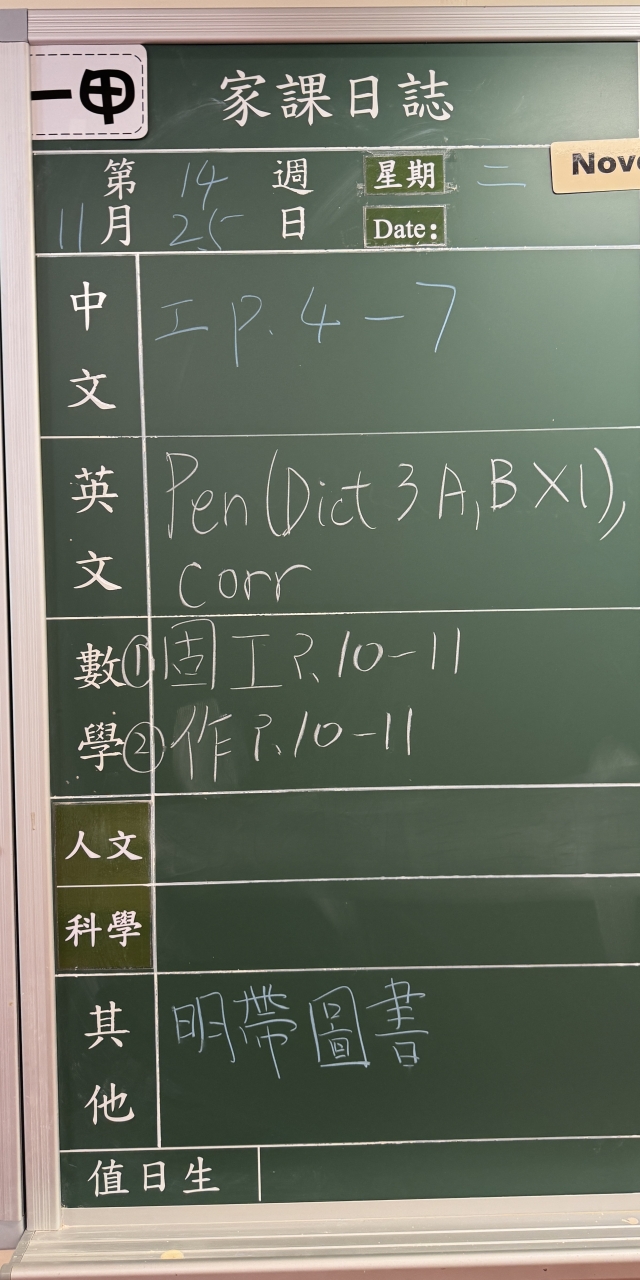 一甲
家課日誌
第 14 週 星期 二
Nov
11 月 25 日 Date:
中文 工 P. 4 - 7
英文 Pen (Dict 3 A, B X1),
corr
數學 ① 固 工 P. 10 - 11
② 作 P. 10 - 11
人文
科學
其他 明帶圖書
值日生